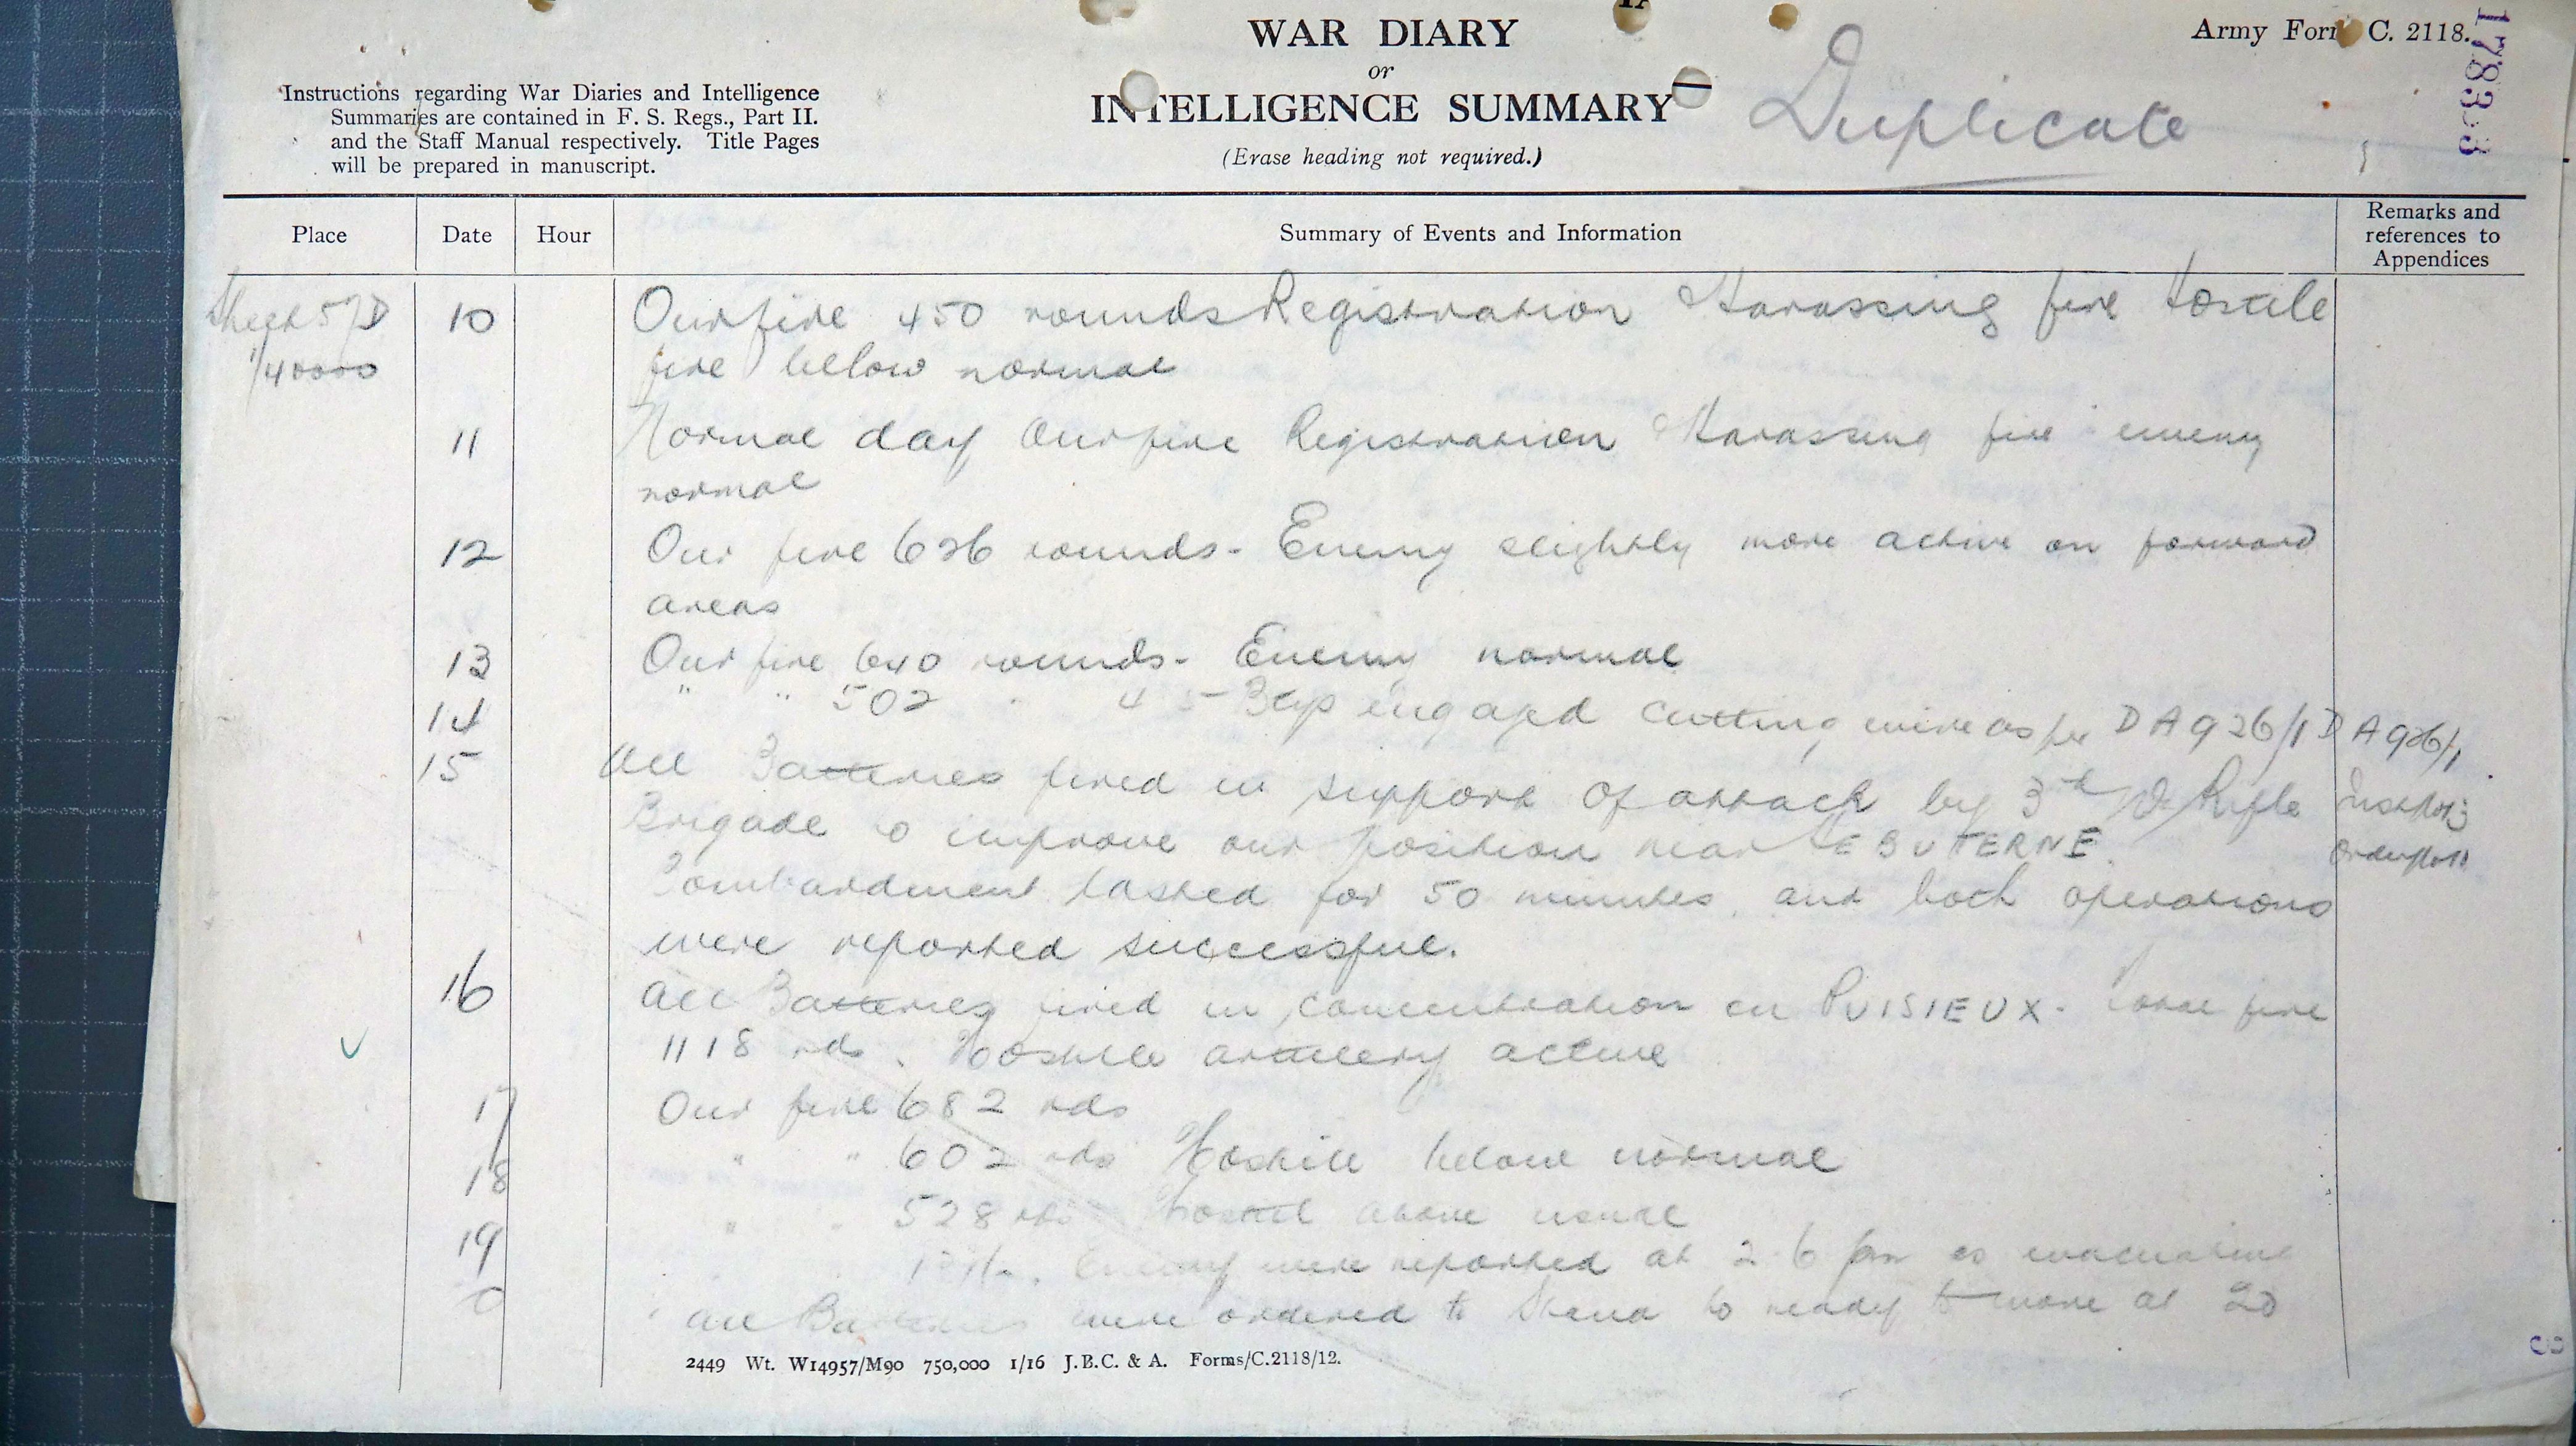 WAR DIARY
or
INTELLIGENCE SUMMARY
(Erase heading not required.)
Duplicate
Army Form C. 2118.
Instructions regarding War Diaries and Intelligence
Summaries are contained in F. S. Regs., Part II.
and the Staff Manual respectively. Title Pages
will be prepared in manuscript.
Place Date Hour Summary of Events and Information Remarks and references to Appendices
Sheet 57D 10 Our fire 450 rounds Registration & Harassing fire Hostile
1/40000 fire below normal
11 Normal day Our fire Registration & Harassing fire enemy
normal
12 Our fire 626 rounds - Enemy slightly more active on forward
areas
13 Our fire 640 rounds - Enemy normal
14 " " 502 " 4.5 Btys engaged cutting wire as per DA 926/1 DA 926/1
15 All Batteries fired in support of attack by 3rd NZ Rifle
Brigade to improve our position near HEBUTERNE.
Bombardment lasted for 50 minutes, and both operations
were reported successful.
16 All Batteries fired in concentration on PUISIEUX. Total fire
1118 rds. Hostile artillery active
17 Our fire 682 rds
18 " " 602 rds Hostile below normal
19 " " 528 rds Hostile above usual
Enemy were reported at 2.6 pm as evacuating
All Batteries were ordered to stand to ready to move at 20
2449 Wt. W14957/M90 750,000 1/16 J.B.C. & A. Forms/C.2118/12.